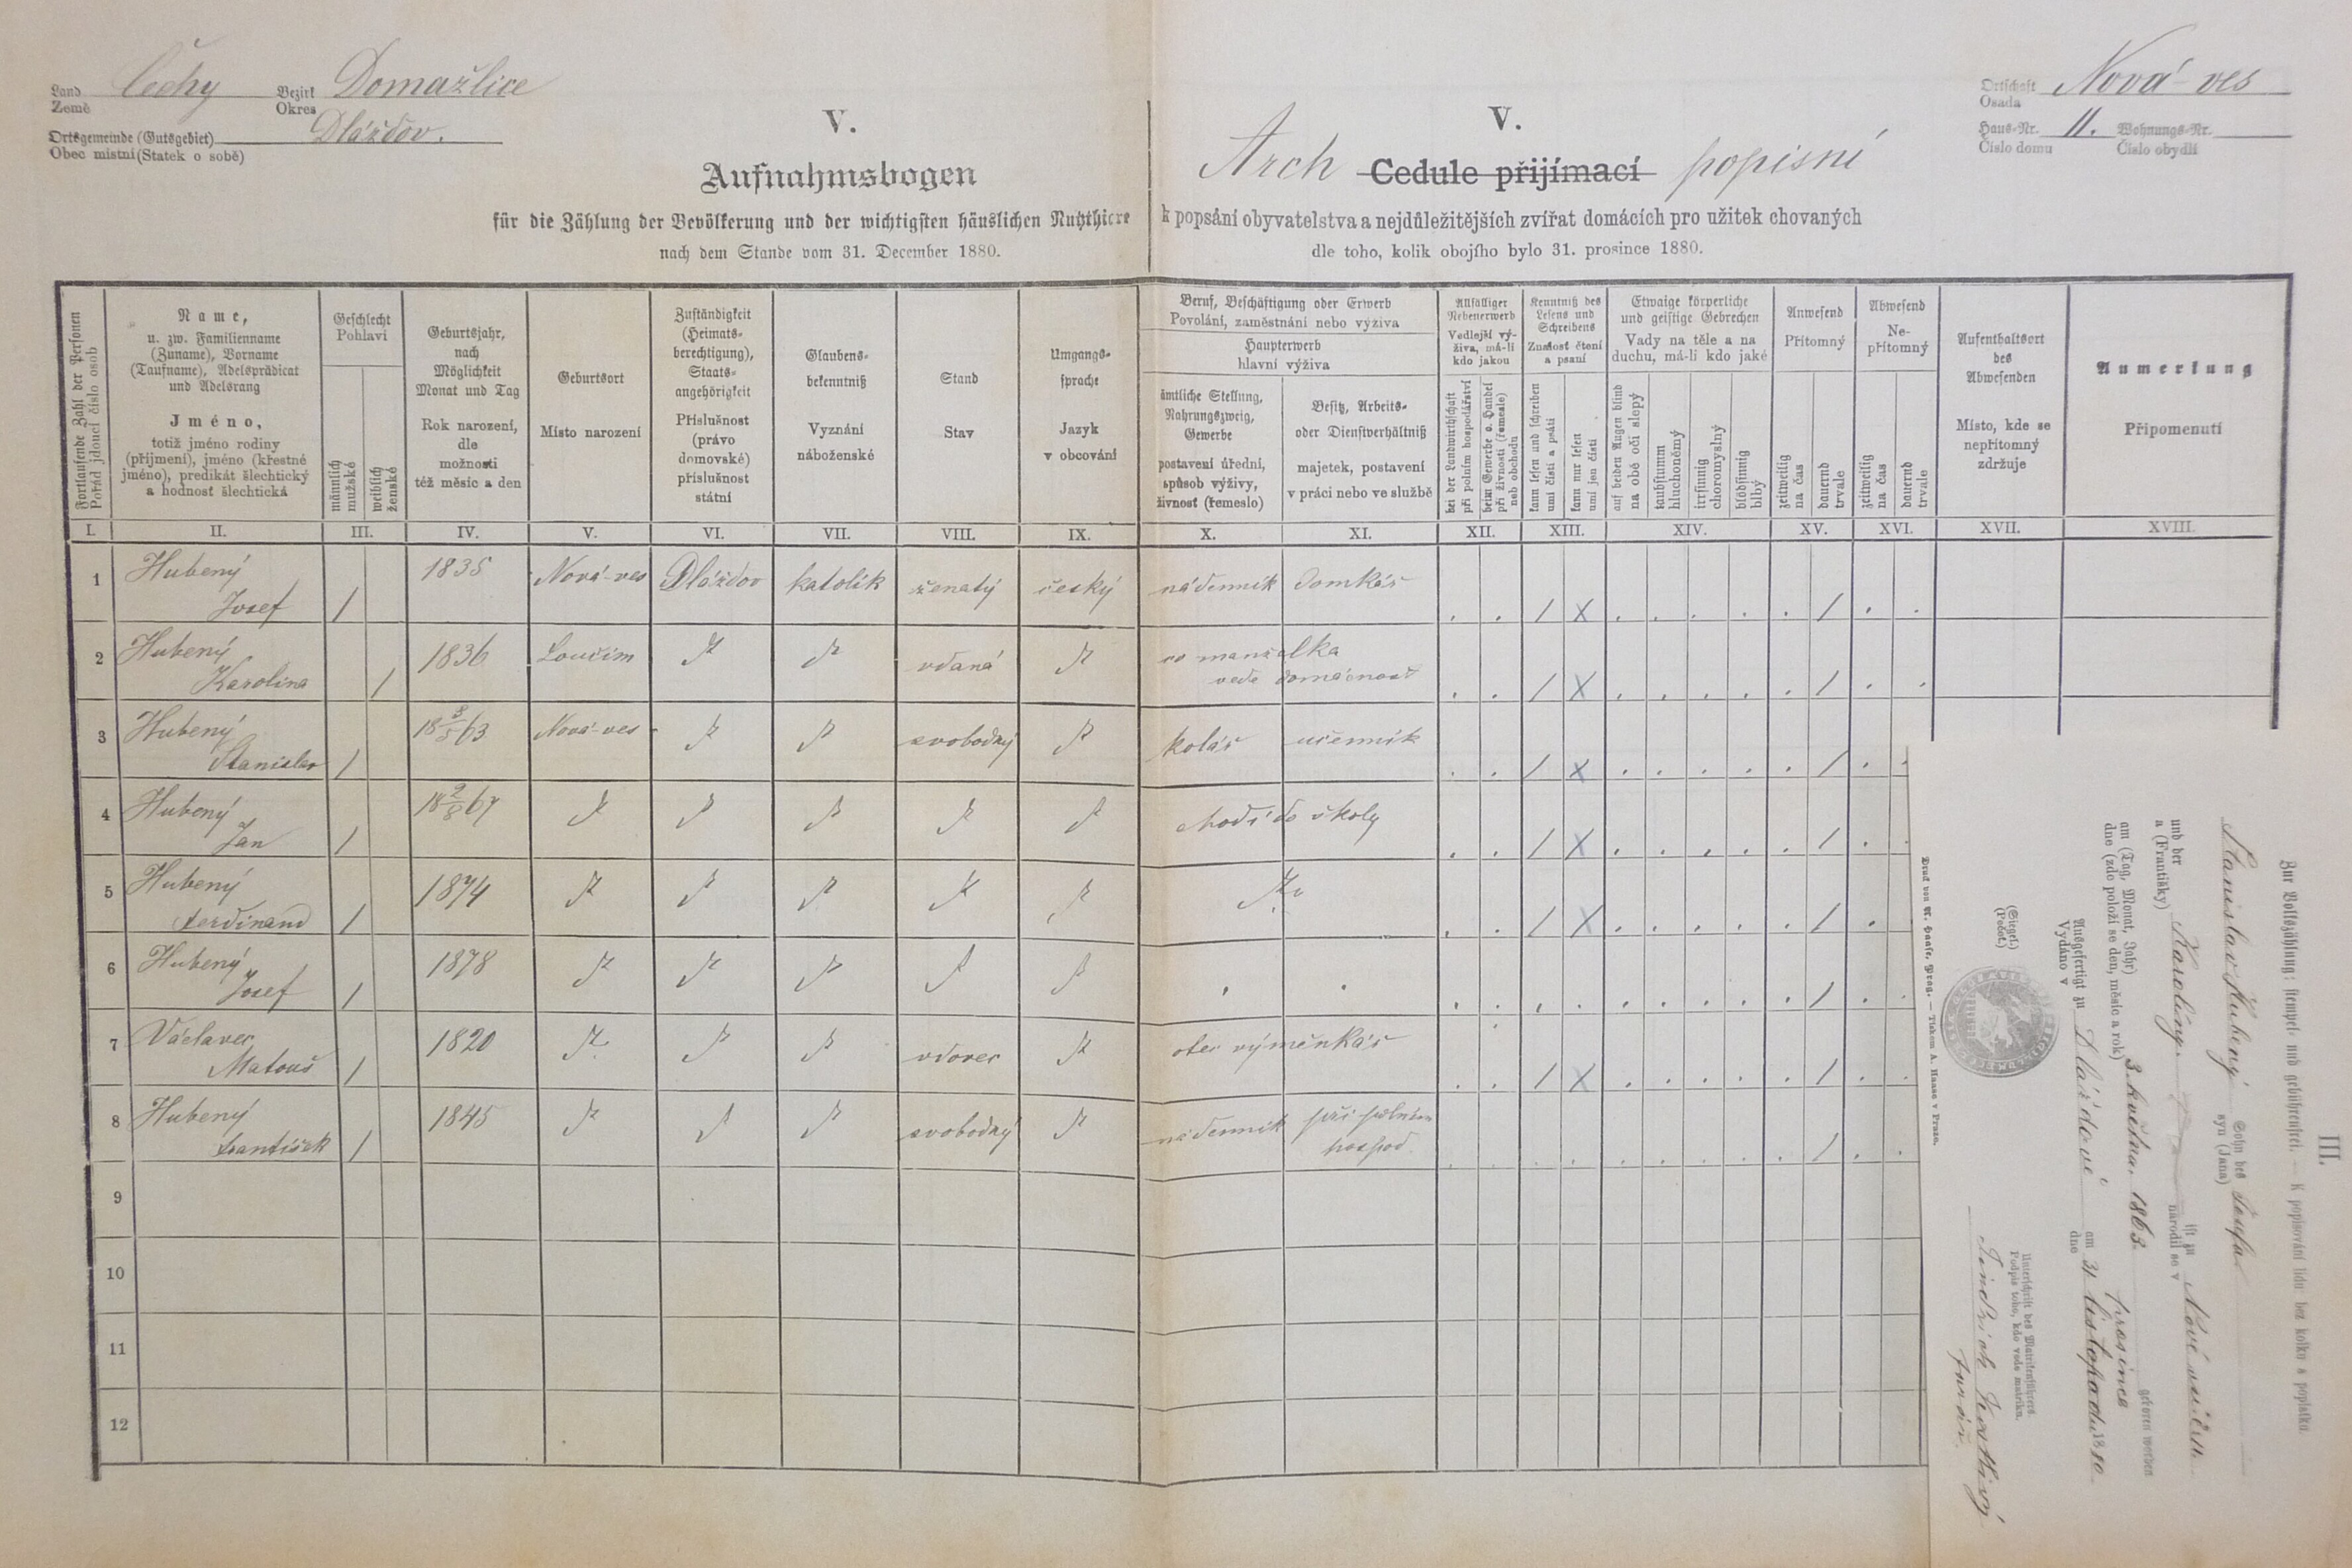 Land Čechy Bezirk Domažlice
Země Okres
Ortsgemeinde (Gutsgebiet) Dlážďov.
Obec místní (Statek o sobě)
V.
Aufnahmsbogen
für die Zählung der Bevölkerung und der wichtigsten häuslichen Nutzthiere
nach dem Stande vom 31. December 1880.
V.
Arch Cedule přijímací popisní
k popsání obyvatelstva a nejdůležitějších zvířat domácích pro užitek chovaných
dle toho, kolik obojího bylo 31. prosince 1880.
Ortschaft Nová-ves
Osada
Haus-Nr. 11. Wohnungs-Nr.
Číslo domu Číslo obydlí
Fortlaufende Zahl der Personen
Pořád jdoucí číslo osob
Name,
u. zw. Familienname
(Zuname), Vorname
(Taufname), Adelsprädicat
und Adelsrang
Jméno,
totiž jméno rodiny
(příjmení), jméno (křestné
jméno), predikát šlechtický
a hodnost šlechtická
Geschlecht
Pohlaví
männlich
mužské
weiblich
ženské
Geburtsjahr,
nach
Möglichkeit
Monat und Tag
Rok narození,
dle
možnosti
též měsíc a den
Geburtsort
Místo narození
Zuständigkeit
(Heimats-
berechtigung),
Staats-
angehörigkeit
Příslušnost
(právo
domovské)
příslušnost
státní
Glaubens-
bekenntniß
Vyznání
náboženské
Stand
Stav
Umgangs-
sprache
Jazyk
v obcování
Beruf, Beschäftigung oder Erwerb
Povolání, zaměstnání nebo výživa
Haupterwerb
hlavní výživa
ämtliche Stellung,
Nahrungszweig,
Gewerbe
postavení úřední,
způsob výživy,
živnost (řemeslo)
Besitz, Arbeits-
oder Dienstverhältniß
majetek, postavení
v práci nebo ve službě
Allfälliger
Nebenerwerb
Vedlejší vý-
živa, má-li
kdo jakou
bei der Landwirthschaft
při polním hospodářství
beim Gewerbe o. Handel
při živnosti (řemesle)
neb obchodu
Kenntniß des
Lesens und
Schreibens
Znalost čtení
a psaní
kann lesen und schreiben
umí čísti a psáti
kann nur lesen
umí jen čísti
Etwaige körperliche
und geistige Gebrechen
Vady na těle a na
duchu, má-li kdo jaké
auf beiden Augen blind
na obě oči slepý
taubstumm
hluchoněmý
irrsinnig
choromyslný
blödsinnig
blbý
Anwesend
Přítomný
zeitweilig
na čas
dauernd
trvale
Abwesend
Ne-
přítomný
zeitweilig
na čas
dauernd
trvale
Aufenthaltsort
des
Abwesenden
Místo, kde se
nepřítomný
zdržuje
Anmerkung
Připomenutí
I. II. III. IV. V. VI. VII. VIII. IX. X. XI. XII. XIII. XIV. XV. XVI. XVII. XVIII.
1 Hubený 1835 Nová-ves Dlážďov katolík ženatý český nádenník domkář
Josef / . . / X . . . . . / . .
2 Hubený 1836 Loučim vdaná manželka
Karolina / vede domácnost . . / X . . . . . / . .
3 Hubený 18 3/5 63 Nová-ves svobodný kolář učenník
Stanislav / . . / X . . . . . / . .
4 Hubený 18 2/8 67 chodí do školy
Jan / . . / X . . . . . / . .
5 Hubený 1874
Ferdinand / . . / X . . . . . / .
6 Hubený 1878 . .
Josef / . . . . . . . . . / . .
7 Václavec 1820 vdovec otec výměnkář
Matouš / . . / X . . . . . / . .
8 Hubený 1845 svobodný nádenník při polním
František / hospod. . . . . . . . . . / . .
9
10
11
12
Druck von A. Haase, Prag. — Tiskem A. Haase v Praze.
III.
Zur Volkszählung; stempel- und gebührenfrei. — K popisování lidu; bez kolku a poplatku.
Stanislav Hubený Sohn des Josefa
syn (Jana)
und der
a (Františky) Karoliny ist zu
narodil se v Nové vsi
am (Tag, Monat, Jahr)
dne (zdo položí se den, měsíc a rok) 3. května 1863. geboren worden
prosince
Ausgefertigt zu
Vydáno v Dlážďově am
dne 31 listopadu 1880.
(Siegel.)
(Pečeť.)
Unterschrift des Matrikenführers
Podpis toho, kdo vede matriku.
Jindřich
farář.